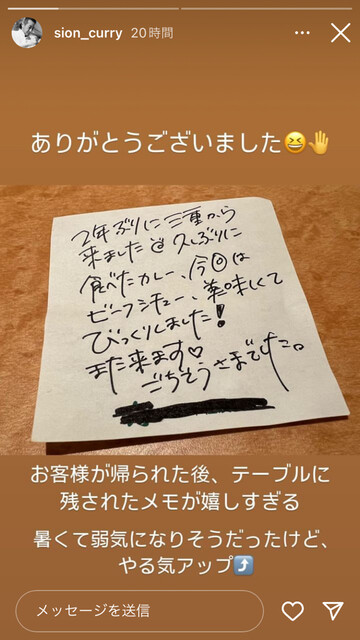 sion_curry 20時間
ありがとうございました😆🤚
2年ぶりに三重から
来ました 久しぶりに
食べたカレー、今回は
ビーフシチュー、美味しくて
びっくりしました！
また来ます♡
ごちそうさまでした。
お客様が帰られた後、テーブルに
残されたメモが嬉しすぎる
暑くて弱気になりそうだったけど、
やる気アップ⤴️
メッセージを送信